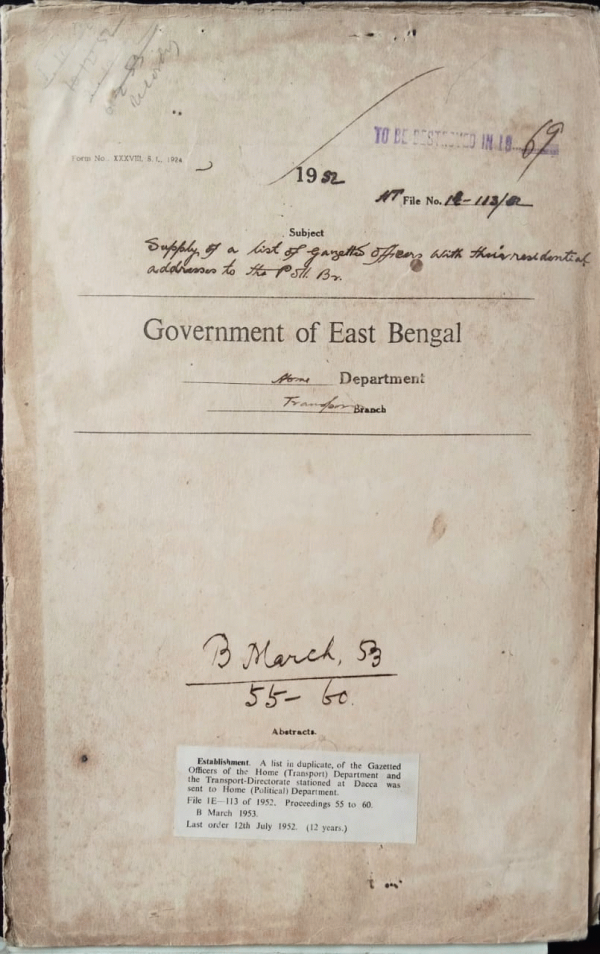 Records
TO BE DESTROYED IN 19 69
Form No. XXXVIII, S. L., 1924
1952
HT File No. 1E-113/52
Subject
Supply of a list of gazetted officers with their residential
addresses to the Poll. Br.
Government of East Bengal
Home Department
Transport Branch
B March, 53
55-60.
Abstracts.
Establishment. A list in duplicate, of the Gazetted
Officers of the Home (Transport) Department and
the Transport-Directorate stationed at Dacca was
sent to Home (Political) Department.
File 1E—113 of 1952. Proceedings 55 to 60.
B March 1953.
Last order 12th July 1952. (12 years.)